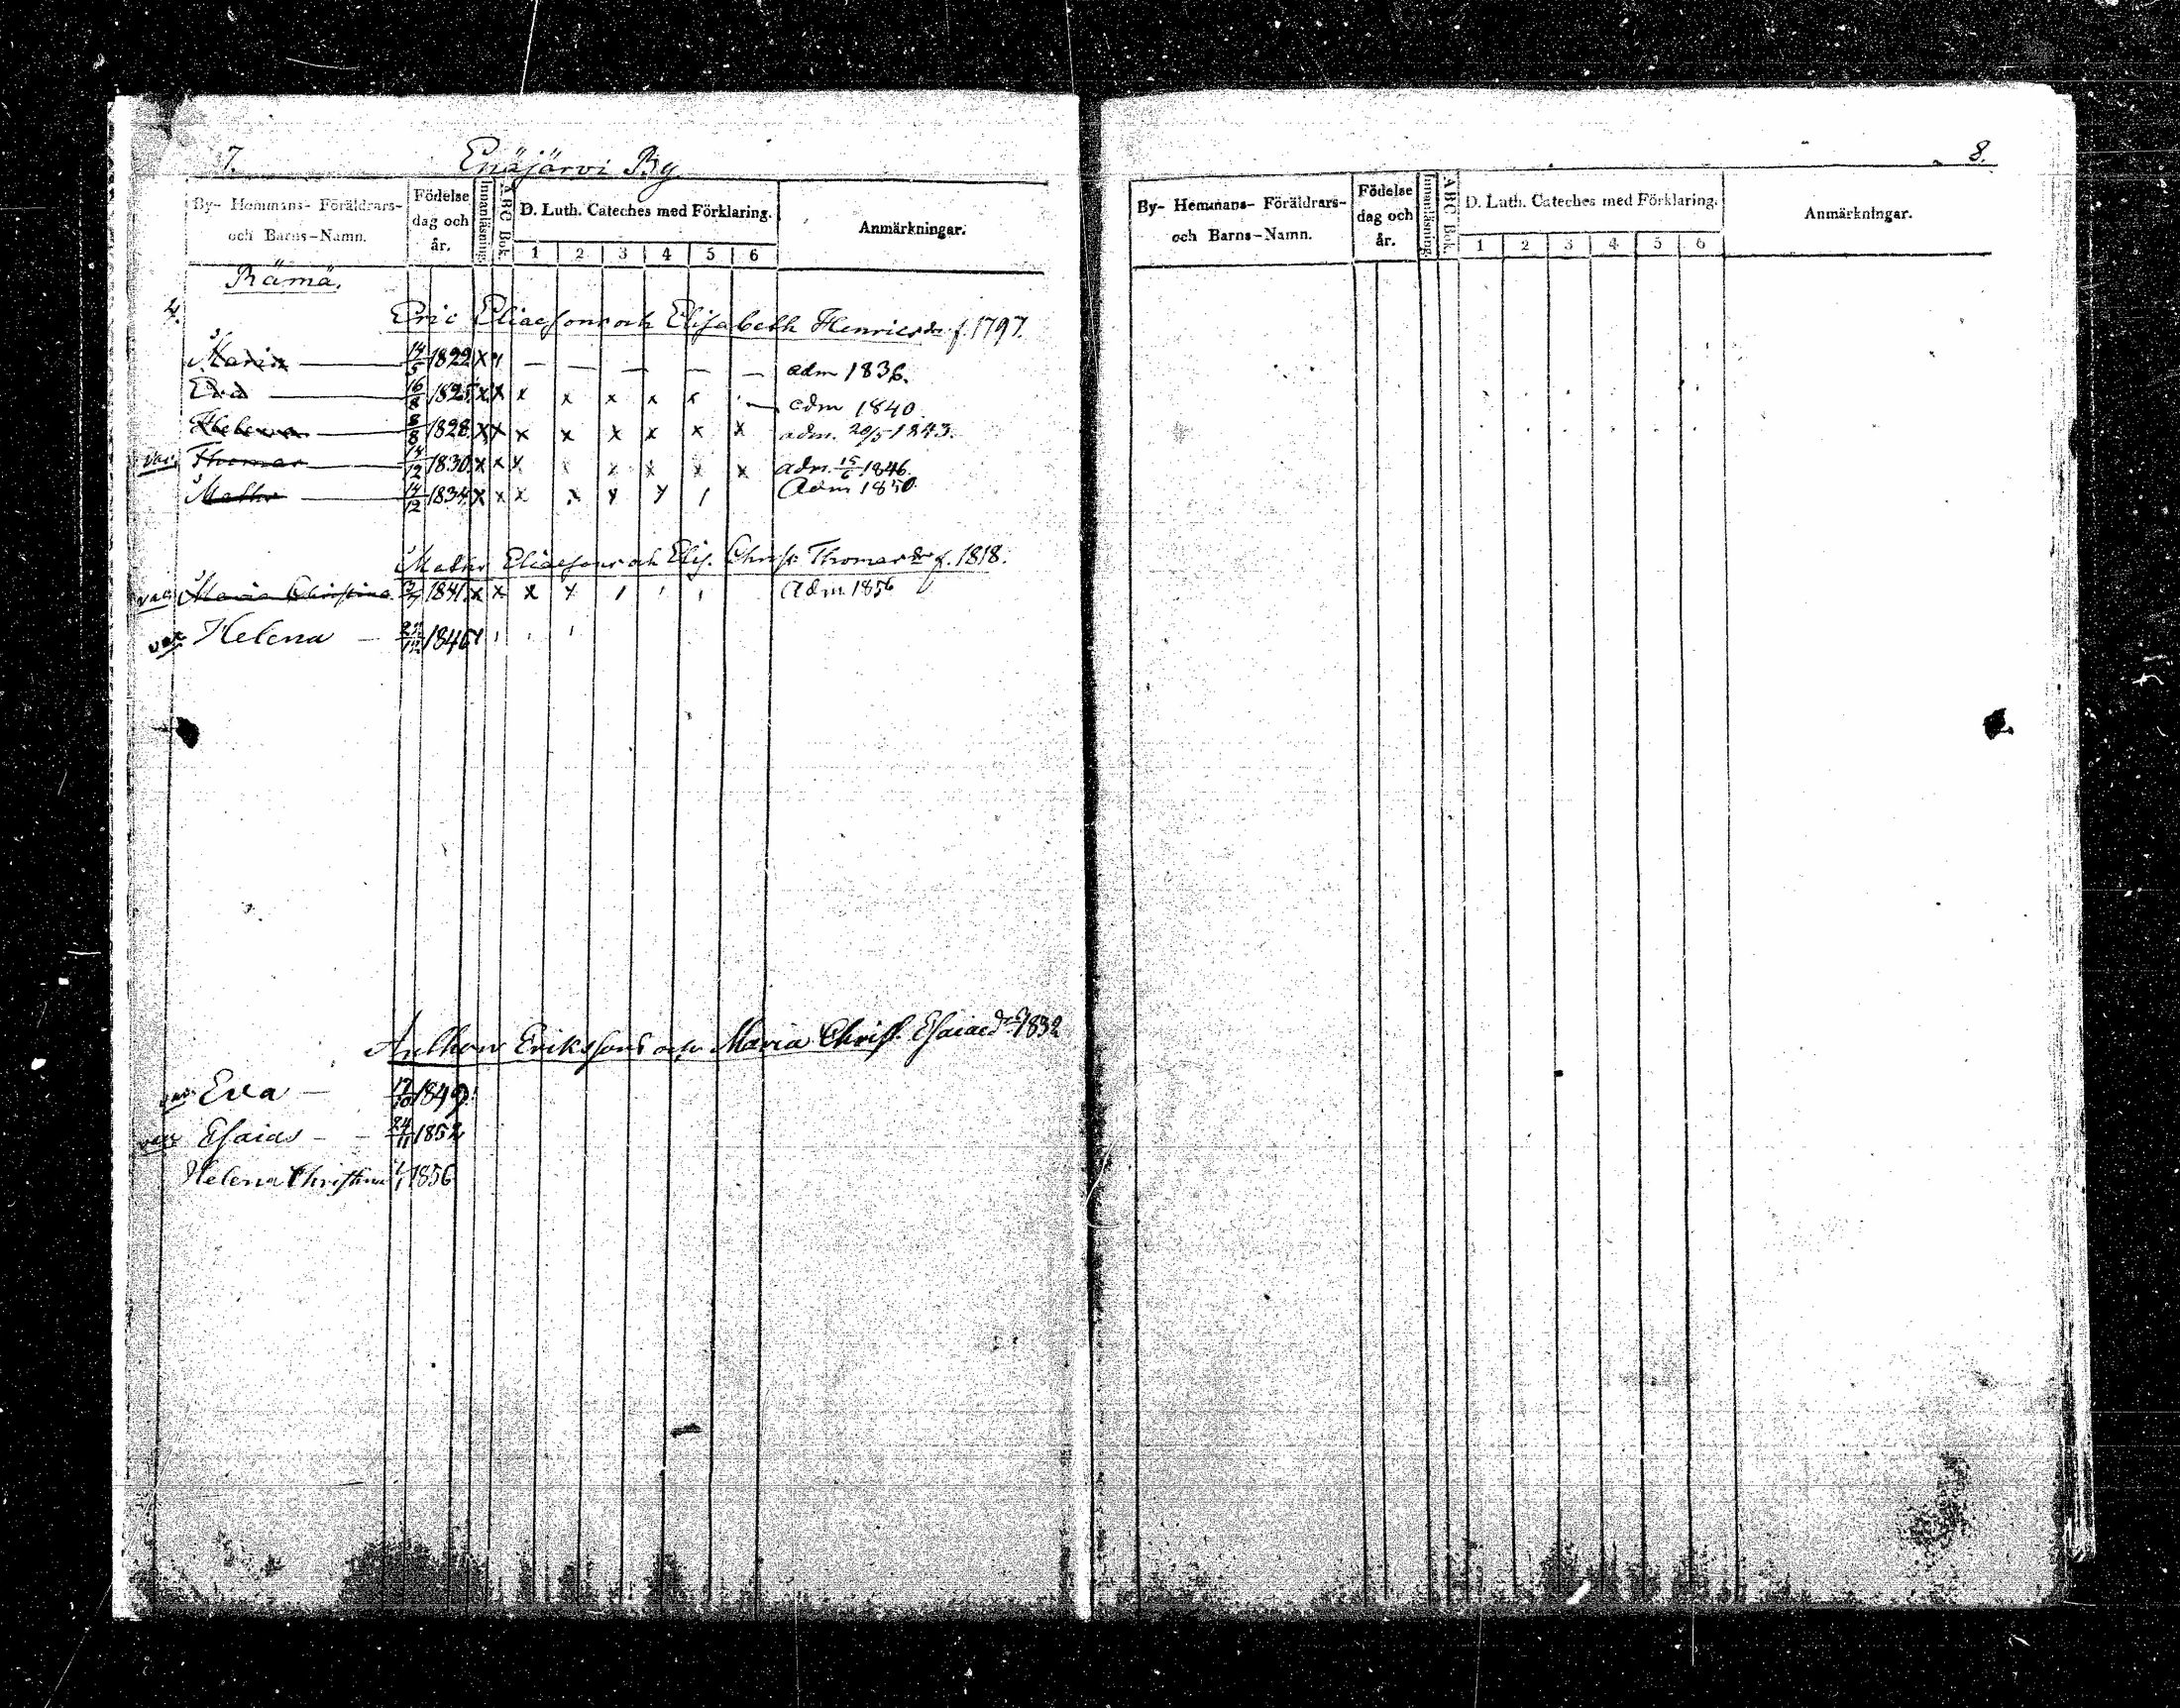 7.
Enäjärvi By
By- Hemmans- Föräldrars- och Barns-Namn.
Födelse dag och år.
Innanläsning.
ABC Bok.
D. Luth. Cateches med Förklaring.
1 2 3 4 5 6
Anmärkningar.
Rämä.
4.
Eric Eliaesons och Elisabeth Henricsdr f. 1797.
Maria 14/5 1822 x x — — — — — — adm 1836.
Eva 16/8 1825. x x x x x x x — adm 1840.
Helena 8/8 1828. x x x x x x x x adm. 20/5 1843.
vac. Thomas 14/12 1830. x x x x x x x adm. 15/6 1846.
Maths 14/12 1834. x x x x Adm 1850.
Maths Eliaesons och Elis. Christ. Thomasdr f. 1818.
vac. Maria Christina 1841. x x x Adm 1856
vac. Helena 1846
Eriksons och Maria Christ. Esaiaedr 1832
vac. Eva — 17/10 1849.
vac. Esaias — 24/11 1852
Helena Christina 1856
8.
By- Hemmans- Föräldrars- och Barns-Namn.
Födelse dag och år.
Innanläsning.
ABC Bok.
D. Luth. Cateches med Förklaring.
1 2 3 4 5 6
Anmärkningar.